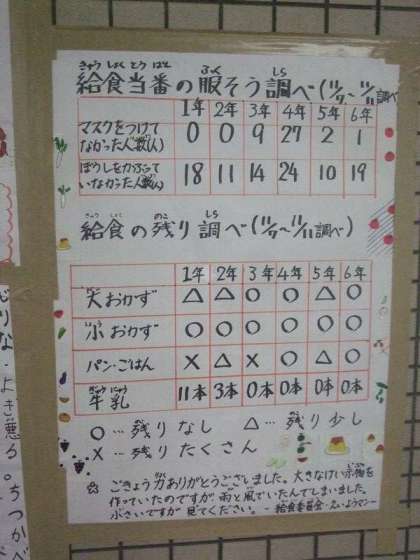 きゅう しょく とう ばん ふく しら
給食当番の服そう調べ(11/7~11/11調べ)
1年 2年 3年 4年 5年 6年
マスクをつけて
なかった人数(人) 0 0 9 27 2 1
ぼうしをかぶって
いなかった人数(人) 18 11 14 24 10 19
きゅう しょく のこ しら
給食の残り調べ(11/7~11/11調べ)
1年 2年 3年 4年 5年 6年
大おかず △ △ ○ ○ △ ○
小おかず ○ ○ ○ ○ ○ ○
パン・ごはん × △ × ○ △ ○
ぎゅう にゅう
牛乳 11本 3本 0本 0本 0本 0本
○…残りなし △…残り少し
×…残りたくさん
☆ ごきょう力ありがとうございました。大きなけい示物を
作っていたのですが雨と風でいたんでしまいました。
小さいですが見てください。-給食委員会・えいようマン-